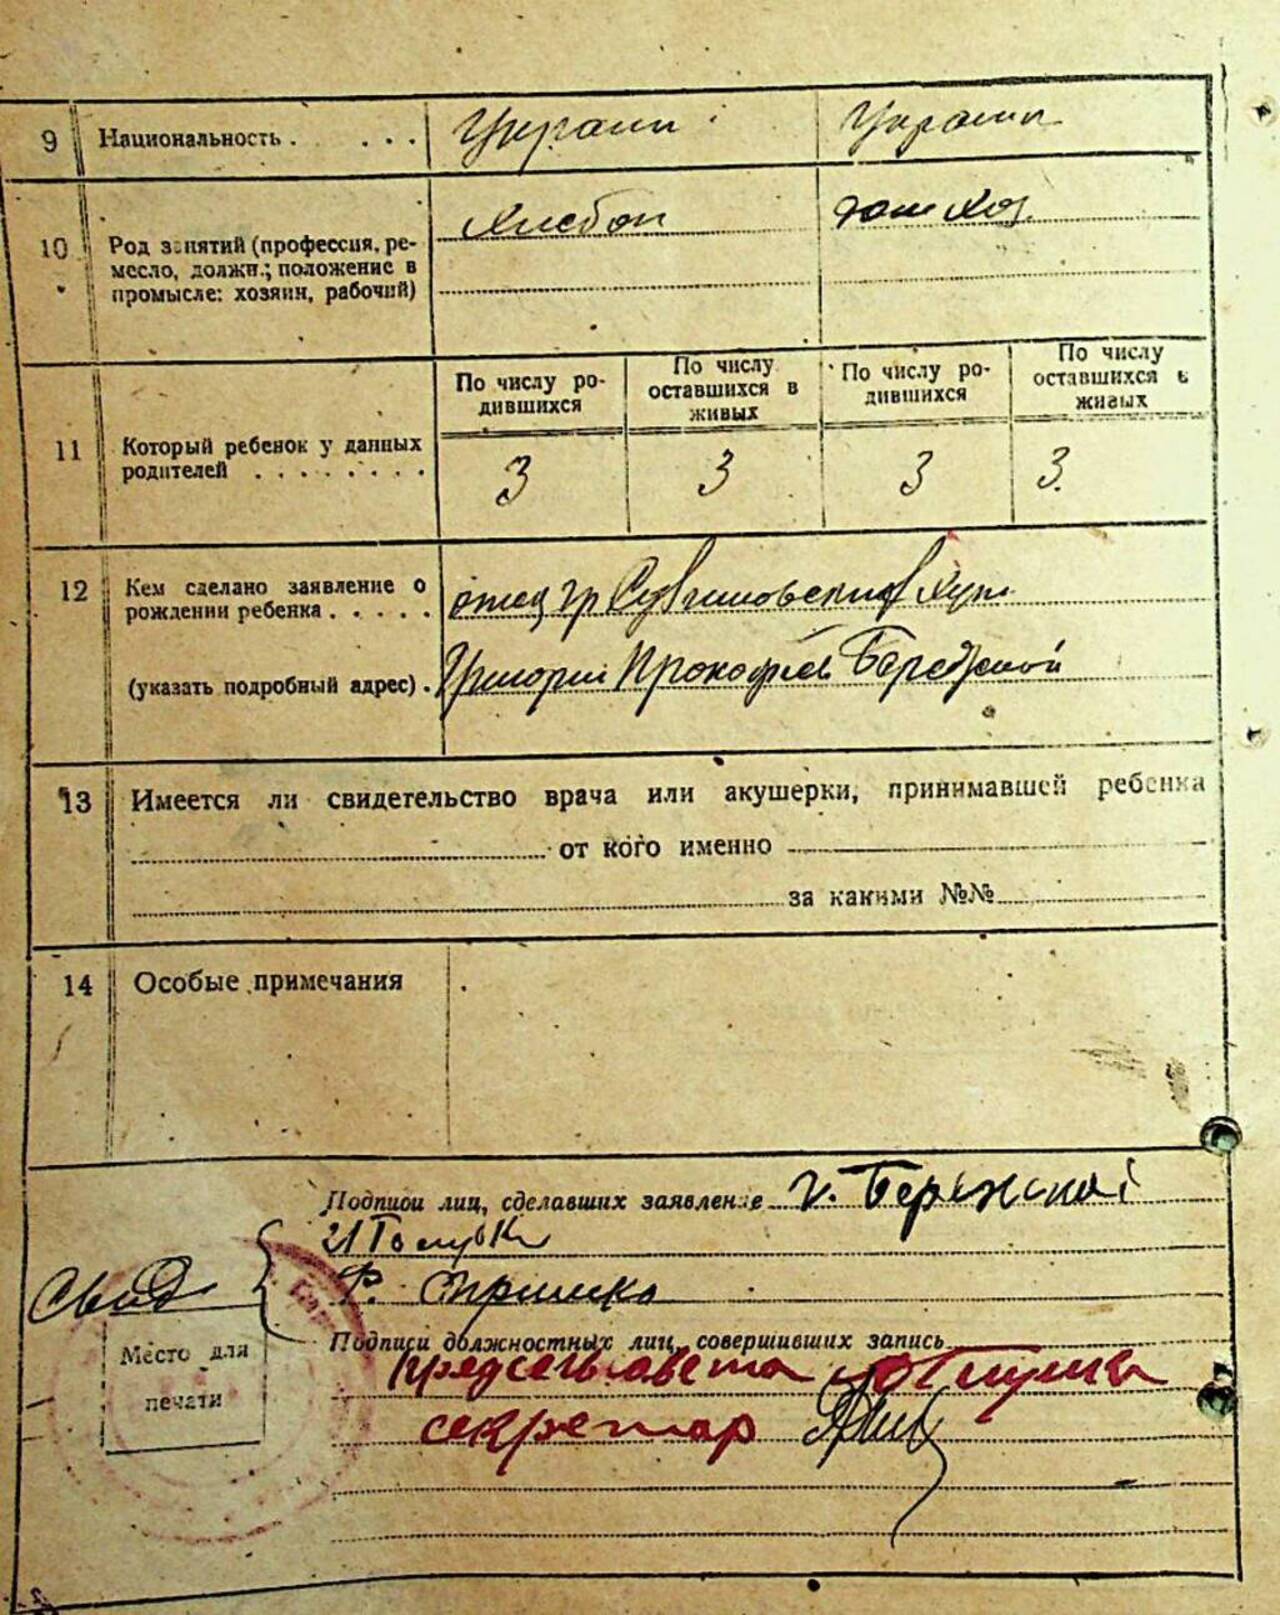 9 Национальность . . . . Украин Украин
10 Род занятий (профессия, ре-
месло, должн.; положение в
промысле: хозяин, рабочий)
Хлебоп дом хоз.
По числу ро-
дившихся
По числу
оставшихся в
живых
По числу ро-
дившихся
По числу
оставшихся в
живых
11 Который ребенок у данных
родителей . . . . . . . .
3 3 3 3.
12 Кем сделано заявление о
рождении ребенка . . . . .
отец гр
(указать подробный адрес) . Григорий Прокофьев Бережной
13 Имеется ли свидетельство врача или акушерки, принимавшей ребенка
от кого именно
за какими №№
14 Особые примечания
Подписи лиц, сделавших заявление г. Бережной
Свид
Ф.
Место для
печати
Подписи должностных лиц, совершивших запись
секретар